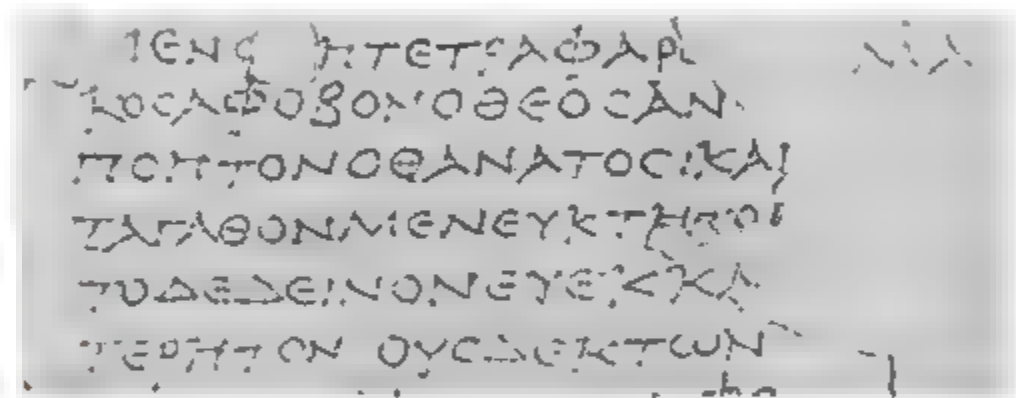 ΗΤΕΤΡΑΦΑΡ
ΚΟϹΑΦΟΒΟΝΟΘΕΟϹΑΝ
ΠΟΠΤΟΝΟΘΑΝΑΤΟϹΚΑΙ
ΤΑΓΑΘΟΝΜΕΝΕΥΚΤΗΤΟ
ΤΟΔΕΔΕΙΝΟΝΕΥΕΚΚΑ
ΤΕΡΗΤΟΝ ΟΥϹΔΕΚΤΩΝ